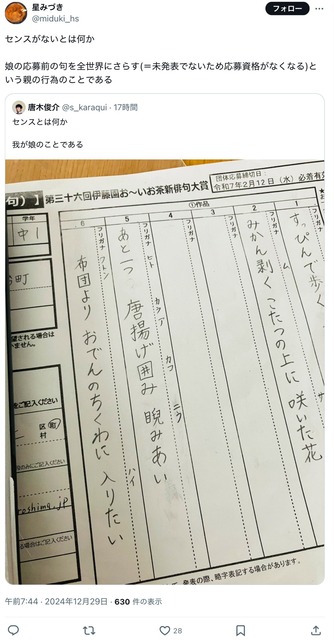 星みづき
@miduki_hs
フォロー
センスがないとは何か
娘の応募前の句を全世界にさらす(=未発表でないため応募資格がなくなる)と
いう親の行為のことである
唐木俊介 @s_karaqui · 17時間
センスとは何か
我が娘のことである
句)】第三十六回伊藤園お〜いお茶新俳句大賞
団体応募締切日
令和7年2月12日(水)必着有
①作品
1
フリガナ
すっぴんで歩く
2
フリガナ
ム
みかん剥く こたつの上に 咲いた花
サ
3
フリガナ
4
フリガナ
5
フリガナ ヒト カラア カコ ニラ
あと一つ 唐揚げ囲み 睨みあい
6
フリガナ フトン ハイ
布団より おでんのちくわに 入りたい
学年
中1
町
望される場合は
いません。
をご記入ください
区 町
村
にご記入ください
roshima.jp
場合はご記入ください
発表の際、略字表記する場合があります。
午前7:44 · 2024年12月29日 · 630 件の表示
28